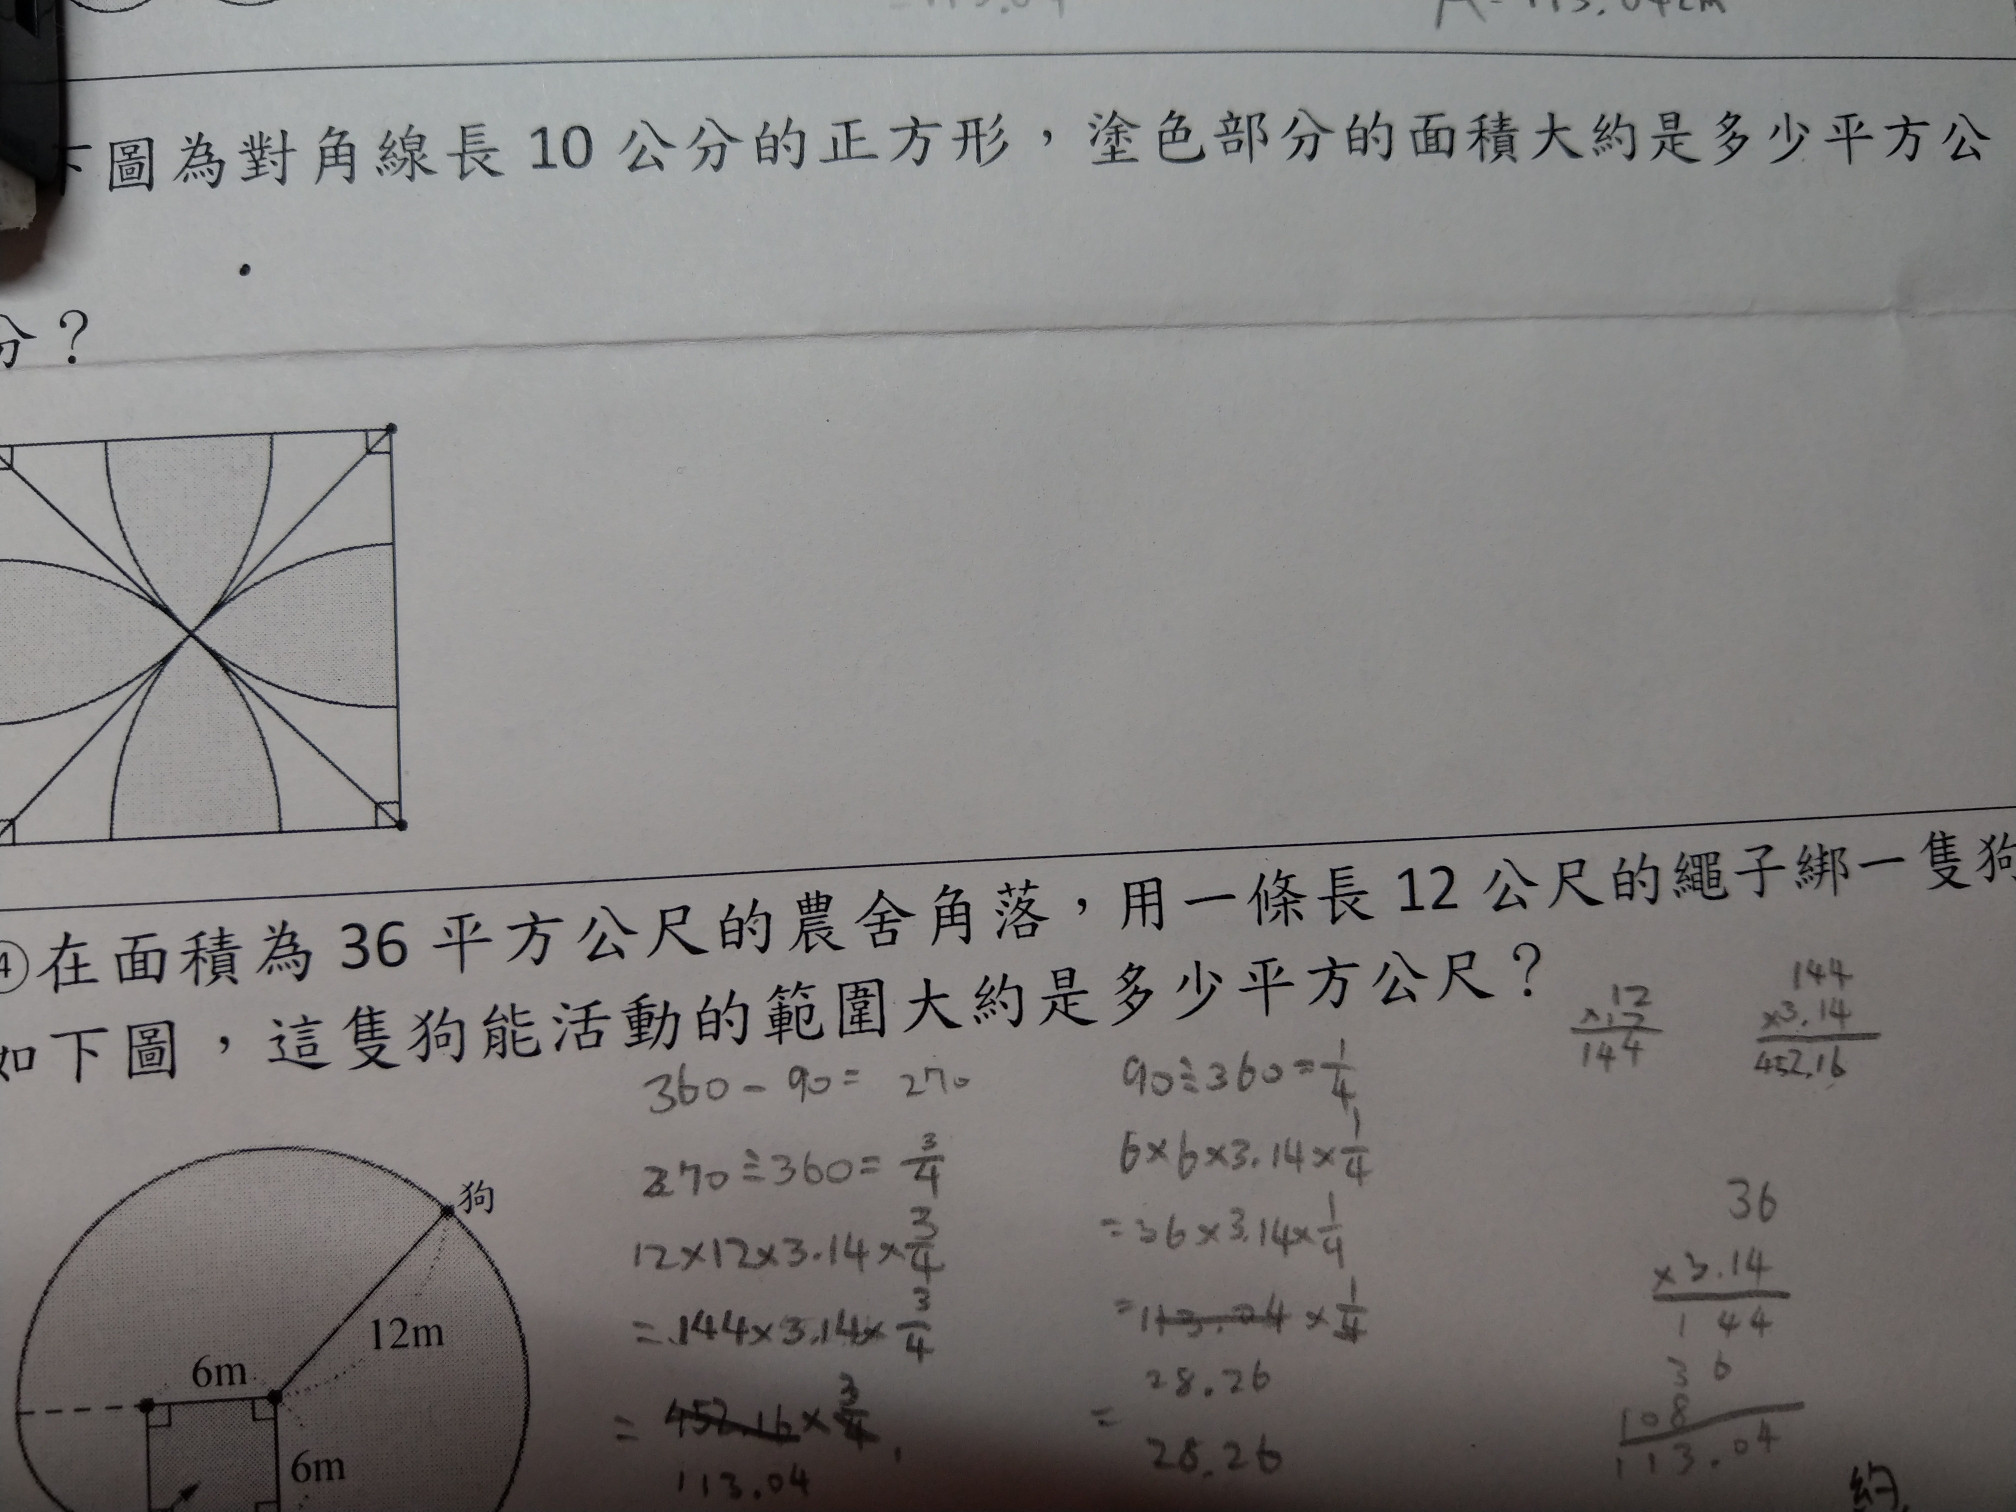 下圖為對角線長 10 公分的正方形，塗色部分的面積大約是多少平方公
分？
④在面積為 36 平方公尺的農舍角落，用一條長 12 公尺的繩子綁一隻狗
如下圖，這隻狗能活動的範圍大約是多少平方公尺？
360 - 90 = 270
270÷360= 3/4
12×12×3.14×3/4
=144×3.14×3/4
= 452.16×3/4
113.04
90÷360=1/4
6×6×3.14×1/4
=36×3.14×1/4
=113.04×1/4
28.26
=
28.26
×12
144
144
×3.14
452.16
36
×3.14
1 44
3 6
108
113.04
約
狗
12m
6m
6m